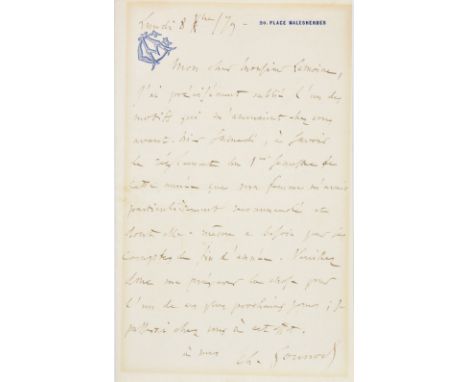 Lundi 8 Xbre/79-
20. PLACE MALESHERBES
Mon cher Monsieur Lemoine,
j'ai précisément oublié l'un des
motifs qui m'amenaient chez vous
avant-hier Samedi, à savoir
le règlement du 1er semestre de
cette année que ma femme m'avait
particulièrement recommandé et
dont elle-même a besoin pour ses
comptes de fin d'année. Veuillez
donc me préparer la chose pour
l'un de ces plus prochains jours; je
passerai chez vous à cet effet.
à vous
Ch. Gounod